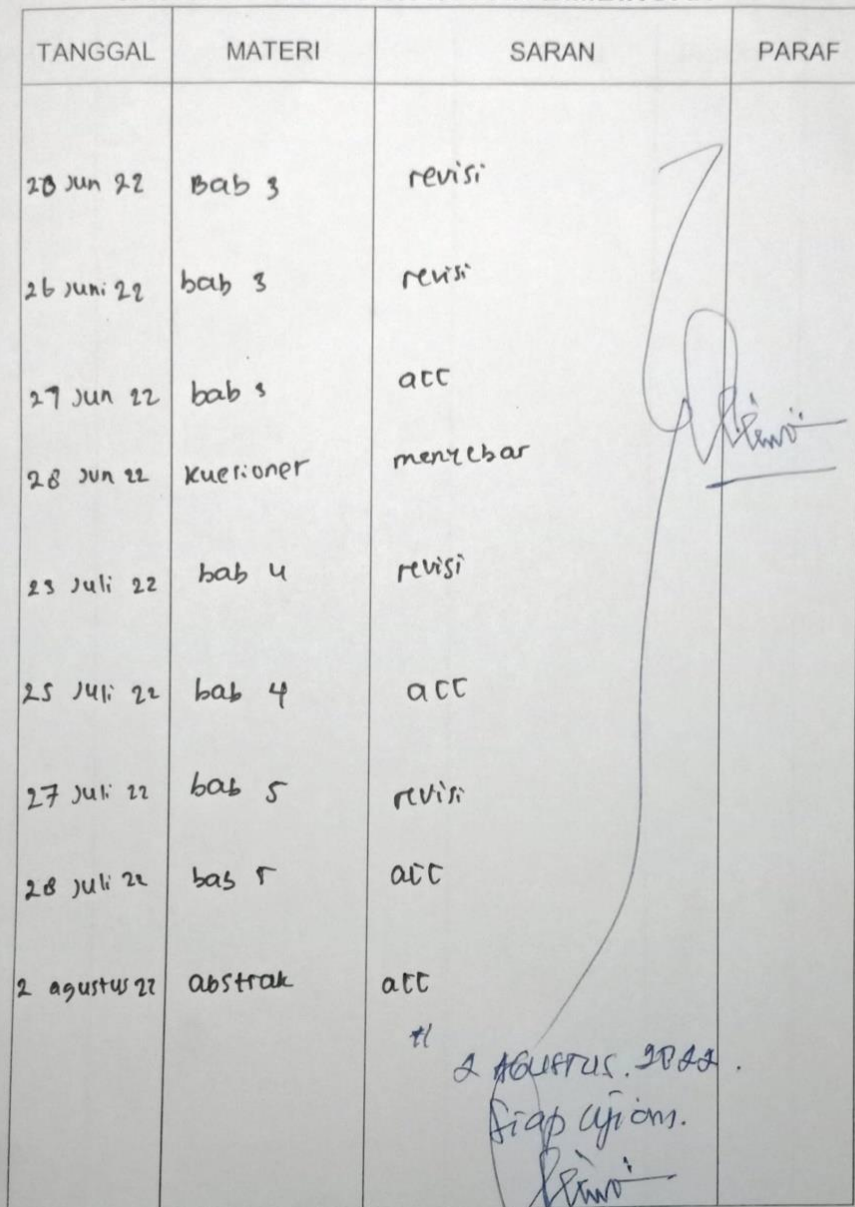 TANGGAL MATERI SARAN PARAF
20 Jun 22 Bab 3 revisi
26 Juni 22 bab 3 revisi
27 Jun 22 bab 3 acc
28 Jun 22 kuesioner menyebar
23 Juli 22 bab 4 revisi
25 Juli 22 bab 4 acc
27 Juli 22 bab 5 revisi
28 Juli 22 bab 5 acc
2 agustus 22 abstrak acc
2 AGUSTUS. 2022.
Siap ujian.